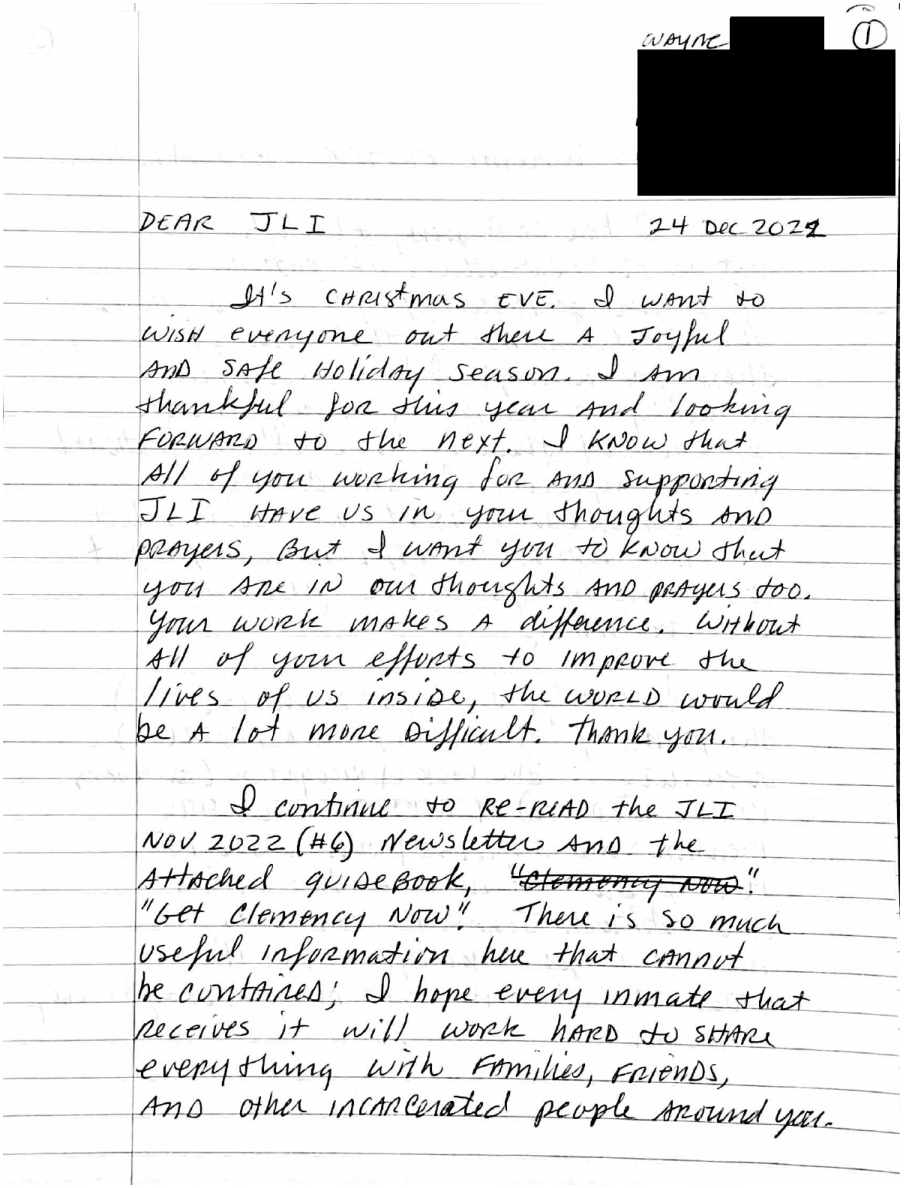 WAYNE
1
DEAR JLI 24 DEC 2022
It's CHRIStmas EVE. I WANT to
WISH everyone out there A Joyful
AND SAfe Holiday season. I Am
thankful for this year and looking
FORWARD to the next. I KNOW that
All of you working for AND supporting
JLI HAVE US IN your thoughts AND
PRAyers, But I want you to KNOW that
you ARE IN our thoughts AND PRAyers too.
Your work makes A difference. Without
All of your efforts to improve the
lives of us insiDe, the WORLD would
be A lot more Difficult. Thank you.
I continue to RE-READ the JLI
NOV 2022 (#6) Newsletter AND the
Attached guiDeBook, "Clemency Now."
"Get Clemency Now". There is so much
useful information here that cannot
be contAineD; I hope every inmate that
Receives it will work HARD to SHARe
everything with FAmilies, FRIenDS,
AND other INCARCerated people Around you.